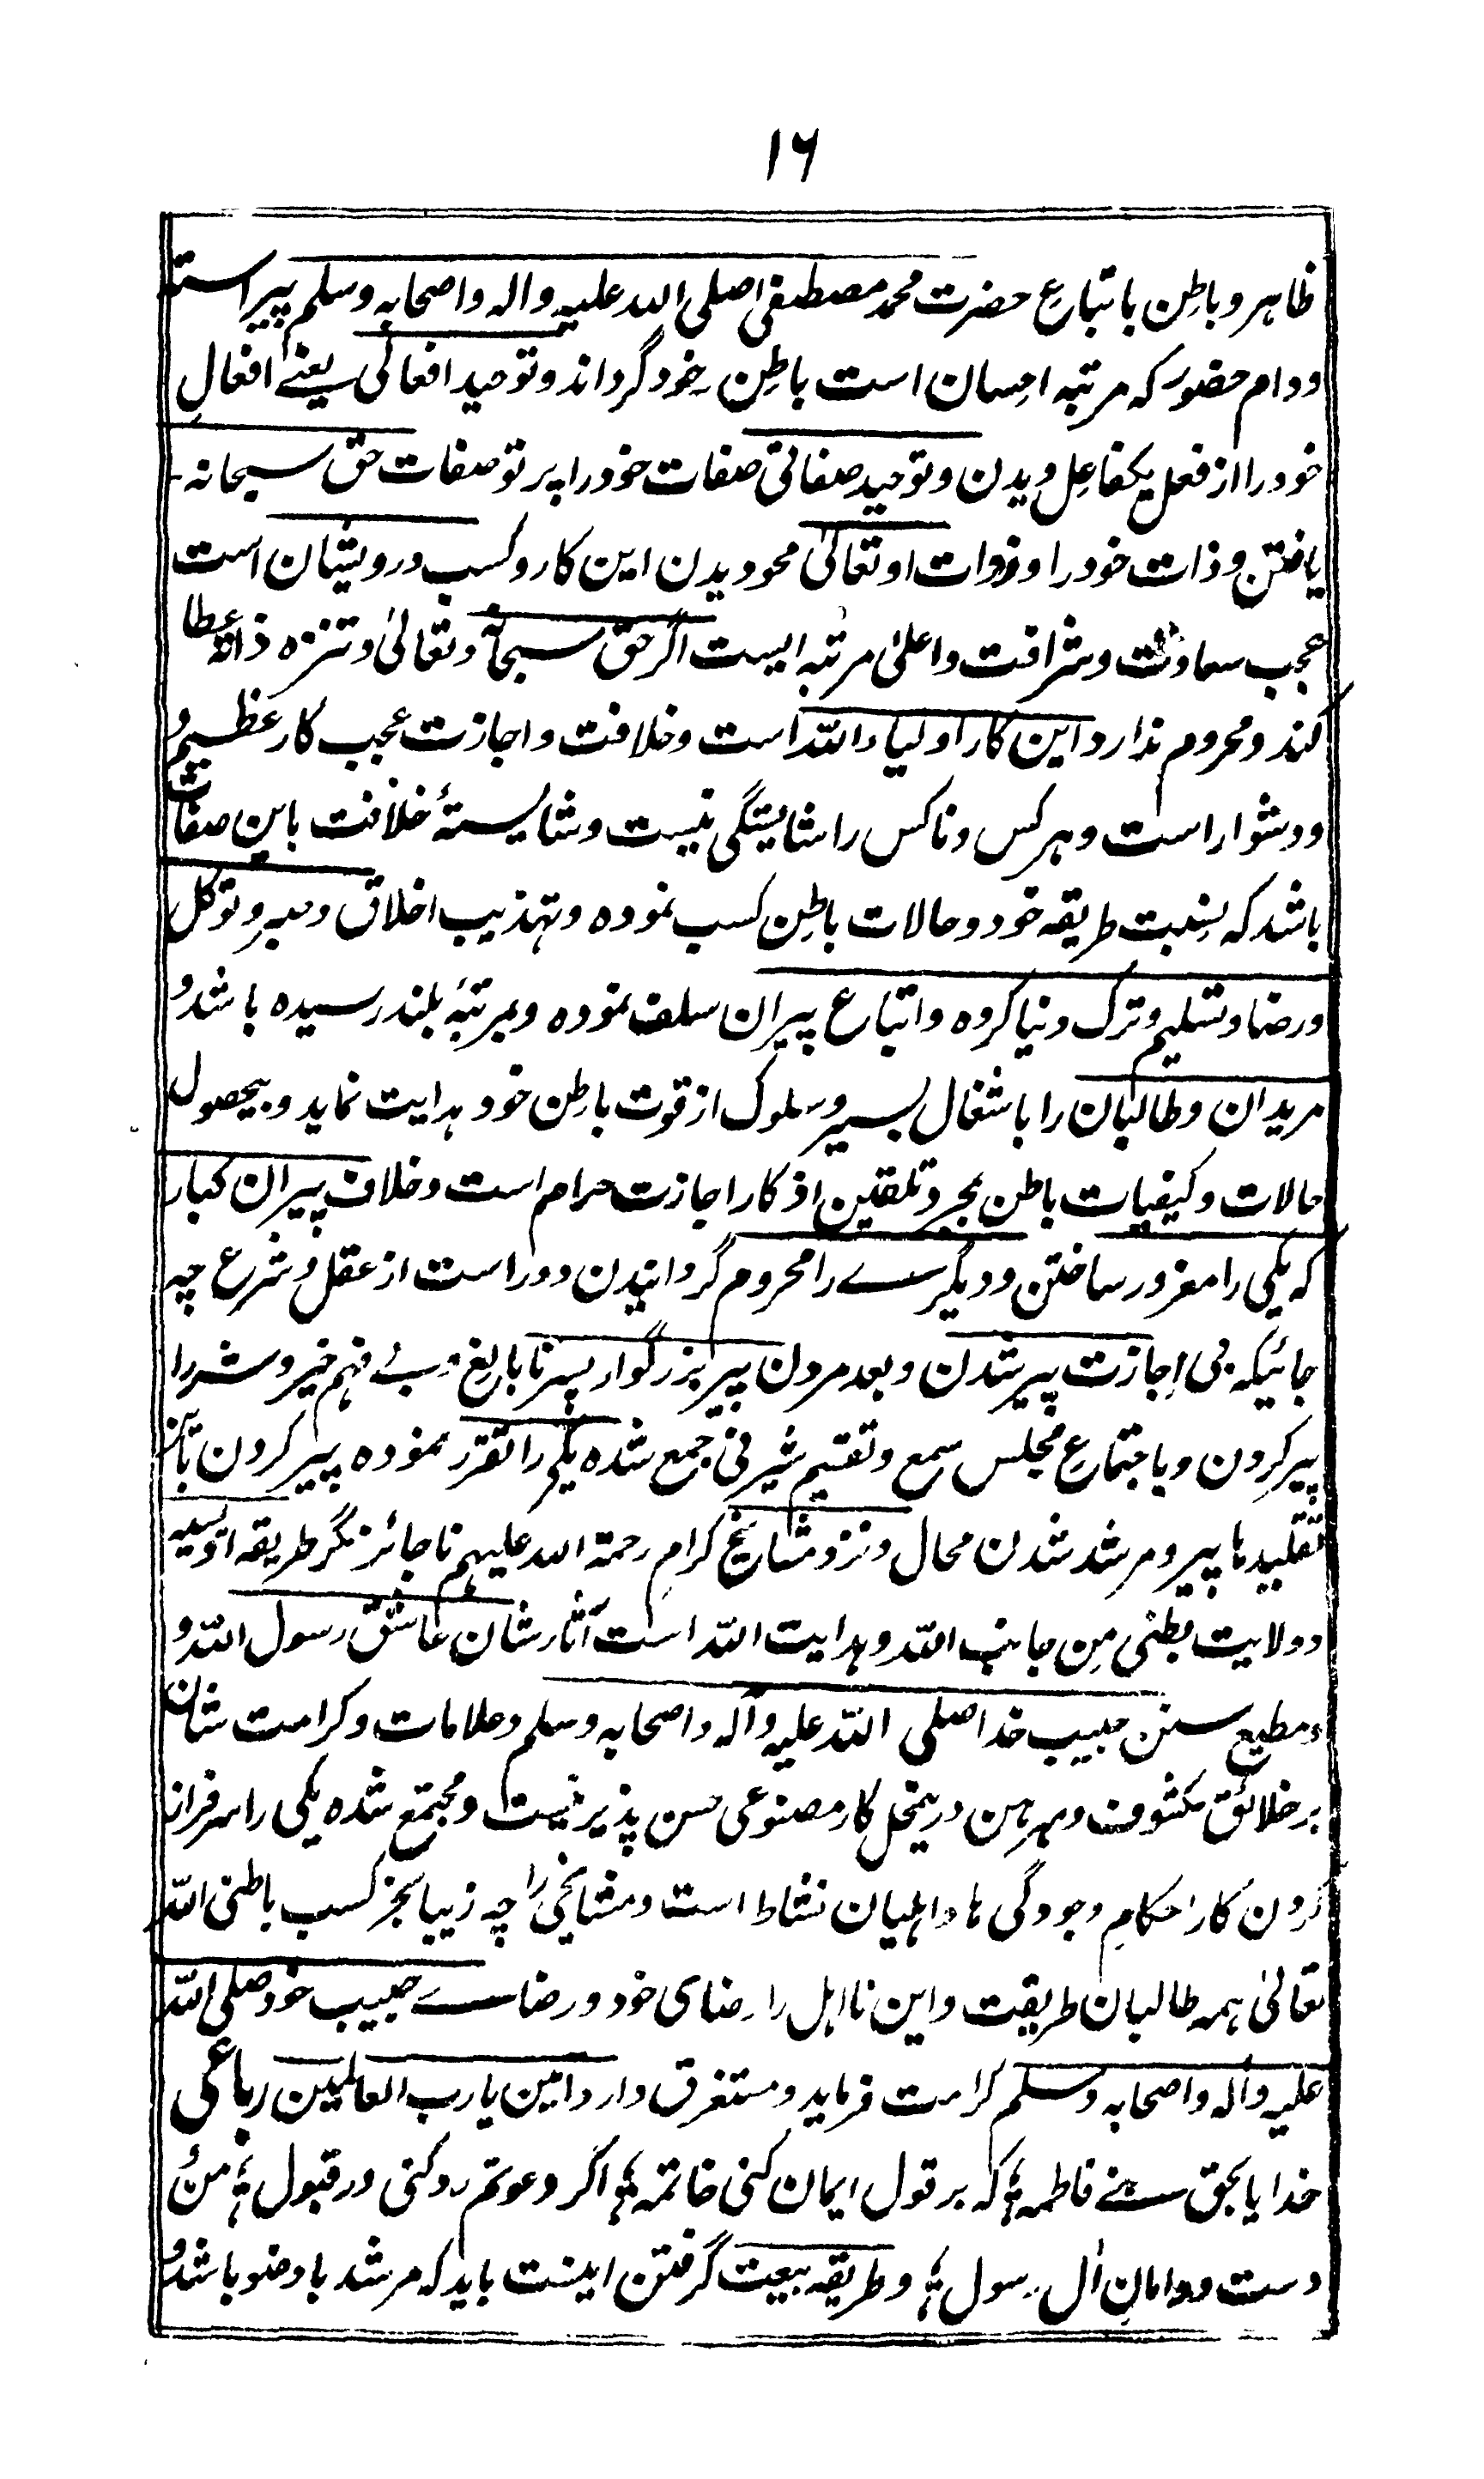 ۱۶
ظاہر و باطن باتباع حضرت محمد مصطفی صلی اللہ علیہ والہ واصحابہ وسلم پیراستہ
ودوام حضور کہ مرتبہ احسان است باطن خود گرداند و توحید افعالی یعنے افعال
خود را از فعل یکفاعل دیدن و توحید صفاتی صفات خود را پرتو صفات حق سبحانہ
یافتن و ذات خود را در ذات او تعالیٰ محو دیدن این کار و کسب درویشان است
عجب سعادت و شرافت و اعلیٰ مرتبہ ایست اگر حق سبحانہ و تعالیٰ و تنزہ ذاتہ عطا
کند و محروم ندارد این کار اولیاء اللہ است و خلافت و اجازت عجب کار عظیم و
دشوار است و ہر کس و ناکس را شایستگی نیست و شایستۂ خلافت باین صفات
باشد کہ نسبت طریقہ خود و حالات باطن کسب نمودہ و تہذیب اخلاق و صبر و توکل
و رضا و تسلیم و ترک دنیا کردہ و اتباع پیران سلف نمودہ و بمرتبۂ بلند رسیدہ باشد و
مریدان و طالبان را باشغال بسیر و سلوک از قوت باطن خود ہدایت نماید و بیحصول
حالات و کیفیات باطن بمجرد تلقین اذکار اجازت حرام است و خلاف پیران کبار
کہ یکی را مغرور ساختن و دیگرے را محروم گردانیدن دور است از عقل و شرع چہ
جائیکہ بی اجازت پیر شدن و بعد مردن پیر بزرگوار پسر نابالغ و بے فہم خیر و شر را
پیر کردن و باجتماع مجلس سمع و تقسیم شیرنی جمع شدہ یکی را تقرر نمودہ پیر کردن
تقلیدہا پیر و مرشد شدن محال و نزد مشایخ کرام رحمۃ اللہ علیہم ناجائز مگر طریقہ اویسیہ
و ولایت بطنی من جانب اللہ و ہدایت اللہ است آثار شان عاشق رسول اللہ و
و مطیع سنن حبیب خدا صلی اللہ علیہ وآلہ واصحابہ وسلم و علامات و کرامت شان
بر خلائق مکشوف و مبرہن درینمحل کار مصنوعی حسن پذیر نیست و مجتمع شدہ یکی را سرفراز
کردن کار احکام وجودگی ہا و اہلیان نشاط است و مشایخی را چہ زیبا بجز کسب باطنی اللہ
تعالیٰ ہمہ طالبان طریقت و این نااہل را رضای خود و رضاے حبیب خود صلی اللہ
علیہ وآلہ واصحابہ وسلم کرامت فرماید و مستغرق دارد امین یارب العالمین رباعی
خدایا بحق بنے فاطمہ ؛ کہ بر قول ایمان کنی خاتمہ ؛ اگر دعوتم رد کنی ور قبول ؛ من و
دست و دامان اٰل رسول ؛ و طریقہ بیعت گرفتن اینست باید کہ مرشد باوضو باشد و